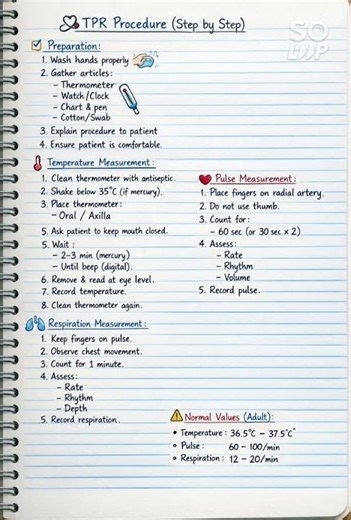 TPR Procedure (Step by Step)
SO
LOOP
Preparation:
1. Wash hands properly
2. Gather articles:
– Thermometer
– Watch/Clock
– Chart & pen
– Cotton/Swab
3. Explain procedure to patient
4. Ensure patient is comfortable.
Temperature Measurement:
1. Clean thermometer with antiseptic.
2. Shake below 35°C (if mercury).
3. Place thermometer:
– Oral / Axilla
5. Ask patient to keep mouth closed.
5. Wait:
– 2–3 min (mercury)
– Until beep (digital).
6. Remove & read at eye level.
7. Record temperature.
8. Clean thermometer again.
Pulse Measurement:
1. Place fingers on radial artery.
2. Do not use thumb.
3. Count for:
– 60 sec (or 30 sec x 2)
4. Assess:
– Rate
– Rhythm
– Volume
5. Record pulse.
Respiration Measurement:
1. Keep fingers on pulse.
2. Observe chest movement.
3. Count for 1 minute.
4. Assess:
– Rate
– Rhythm
– Depth
5. Record respiration.
Normal Values (Adult):
• Temperature: 36.5°C – 37.5°C°
• Pulse: 60 – 100/min
• Respiration: 12 – 20/min